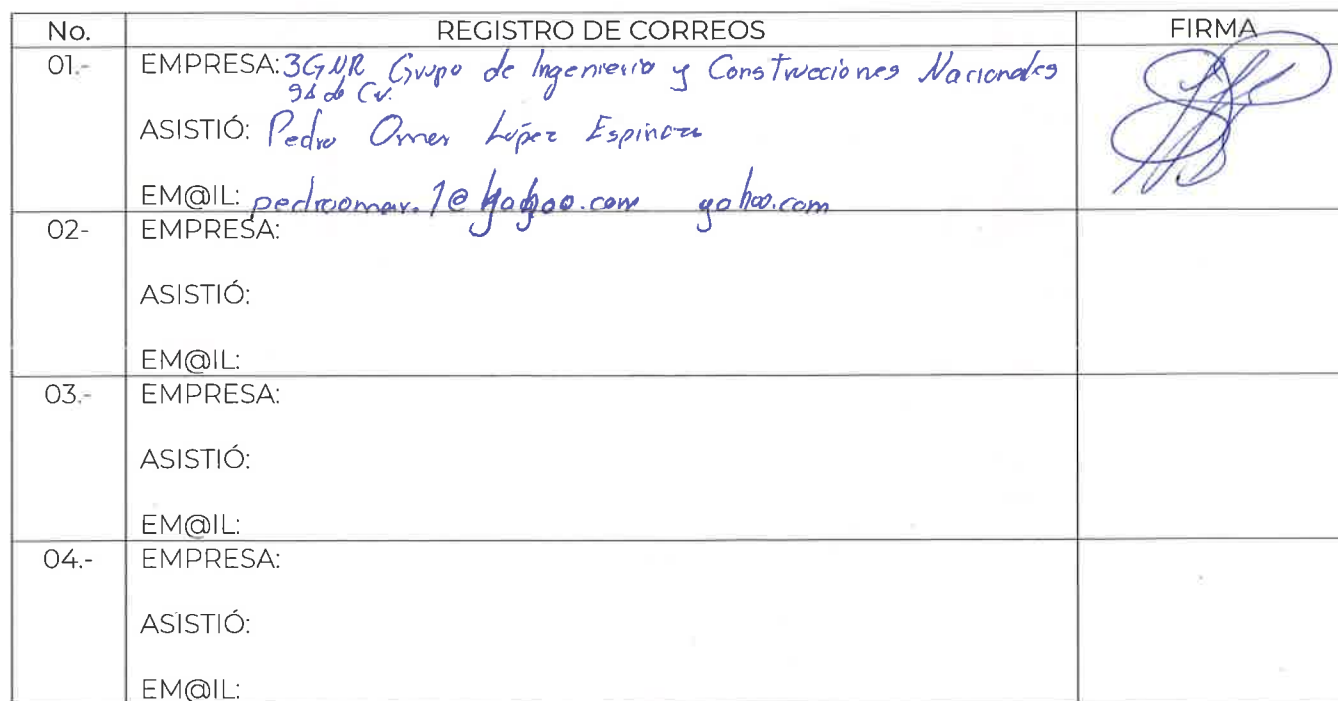 No. REGISTRO DE CORREOS FIRMA
01.- EMPRESA: 3GNR Grupo de Ingenieria y Construcciones Nacionales
de Cv.
ASISTIÓ: Pedro Omar López Espinoza
EM@IL: pedroomar.1@yahoo.com yahoo.com
02- EMPRESA:
ASISTIÓ:
EM@IL:
03.- EMPRESA:
ASISTIÓ:
EM@IL:
04.- EMPRESA:
ASISTIÓ:
EM@IL: